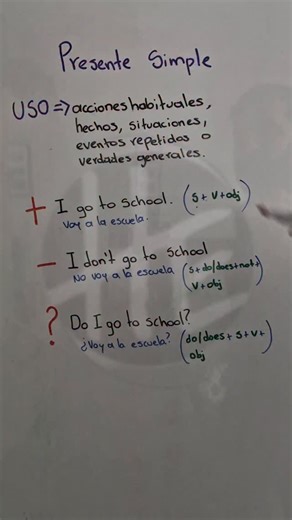 Presente Simple
USO => acciones habituales,
hechos, situaciones,
eventos repetidos o
verdades generales.
+ I go to school. (S + V + obj)
Voy a la escuela.
- I don't go to school
No voy a la escuela (S + do/does + not +
V + obj)
? Do I go to school?
¿Voy a la escuela? (do/does + S + V +
obj)